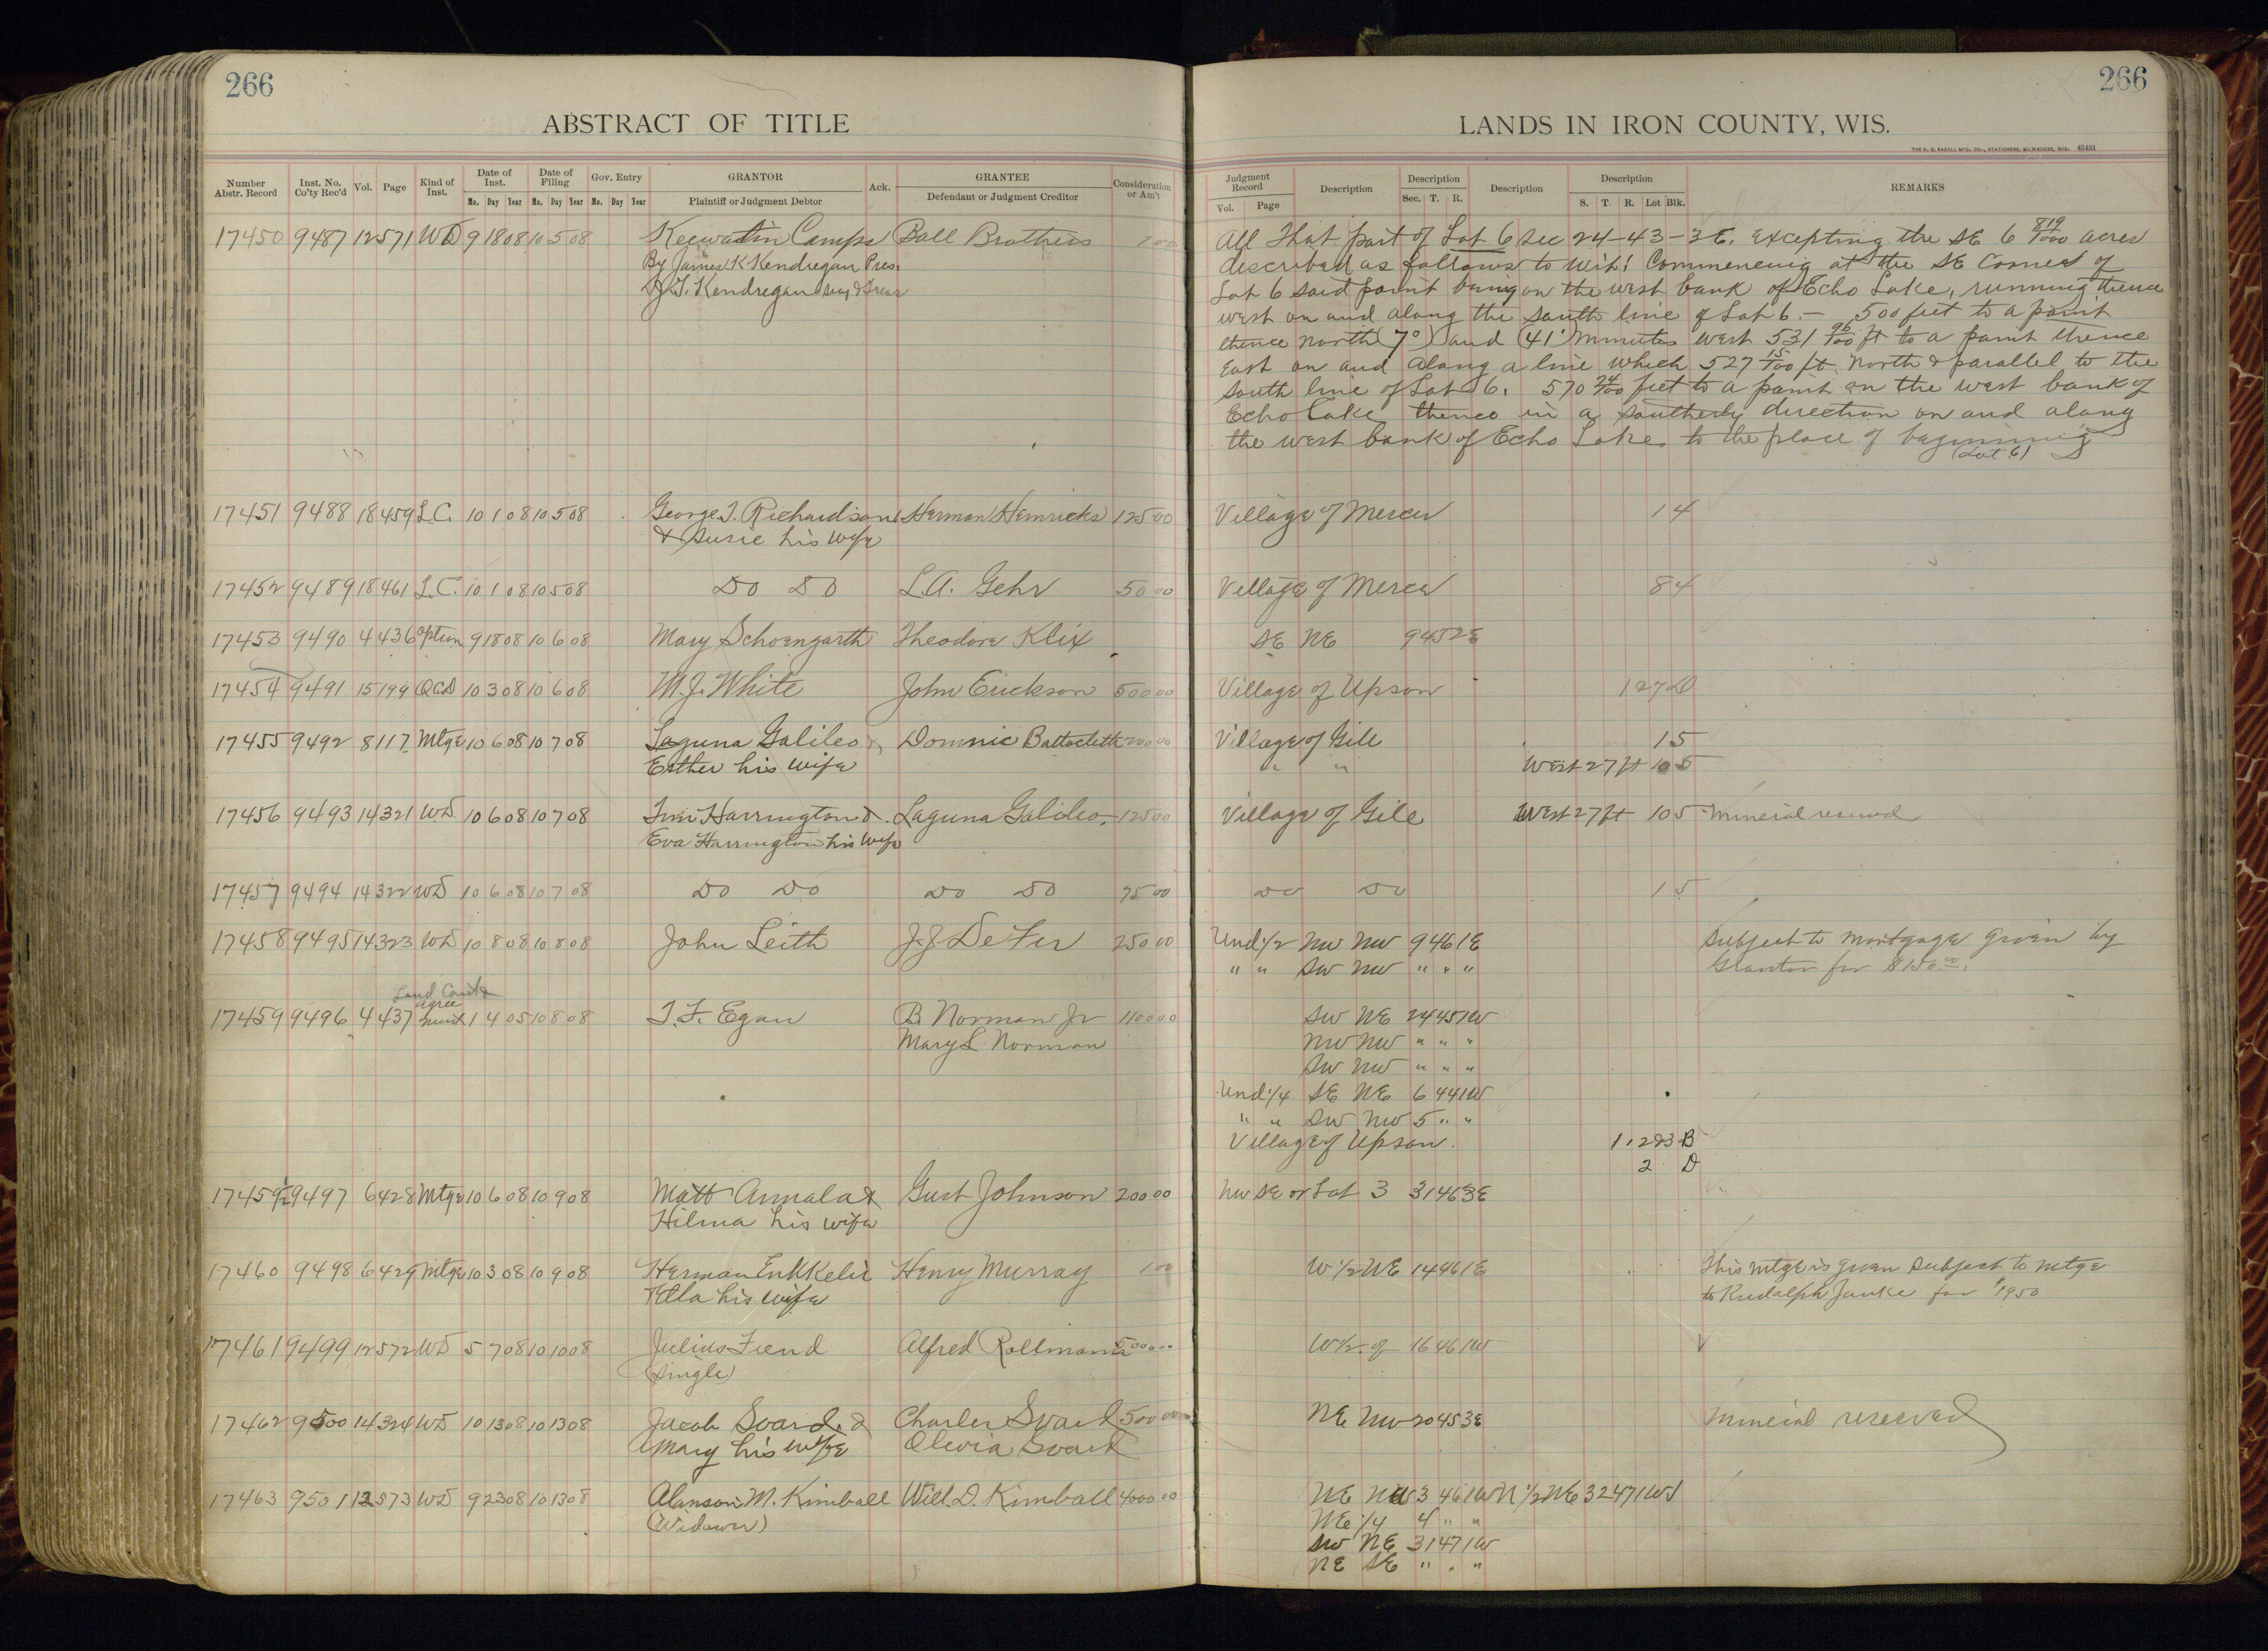 266
266
ABSTRACT OF TITLE
LANDS IN IRON COUNTY, WIS.
THE H. G. RAZALL MFG. CO., STATIONERS, MILWAUKEE, WIS. 45431
Number Abstr. Record Inst. No. Co'ty Rec'd Vol. Page Kind of Inst. Date of Inst. Mo. Day Year Date of Filing Mo. Day Year Gov. Entry Mo. Day Year GRANTOR Plaintiff or Judgment Debtor Ack. GRANTEE Defendant or Judgment Creditor Consideration or Am't
Judgment Record Vol. Page Description Description Sec. T. R. Description Description S. T. R. Lot Blk. REMARKS
17450 9487 12 571 WD 9 18 08 10 5 08 Keewatin Camps Ball Brothers 1 00
By James K Kendregan Pres.
Kendregan Secy & Treas
All That part of Lot 6 Sec 24-43-3E. Excepting the SE 6 819/1000 acres
described as follows to wit: Commencing at the SE Corner of
Lot 6 said point being on the west bank of Echo Lake, running thence
west on and along the south line of Lot 6. — 500 feet to a point
thence north (7°) and (41') minutes west 531 96/100 ft to a point thence
East on and along a line which 527 15/100 ft North & parallel to the
south line of Lot 6. 570 24/100 feet to a point on the west bank of
Echo Lake thence in a southerly direction on and along
the west bank of Echo Lake to the place of beginning
(Lot 6)
17451 9488 18 459 L.C. 10 1 08 10 5 08 George T. Richardson Herman Hemricks 125 00 Village of Mercer 14
& Susie his wife
17452 9489 18 461 L.C. 10 1 08 10 5 08 Do Do L.A. Gehr 50 00 Village of Mercer 84
17453 9490 4 436 Option 9 18 08 10 6 08 Mary Schoengarth Theodore Klix SE NE 9 45 2E
17454 9491 15 199 QCD 10 3 08 10 6 08 M.J. White John Erickson 500 00 Village of Upson 12 7 D
17455 9492 8 117 Mtge 10 6 08 10 7 08 Laguna Galileo & Dominic Battocletti 200 00 Village of Gile 15
Esther his wife " " West 27 ft 105
17456 9493 14 321 WD 10 6 08 10 7 08 Harrington & Laguna Galileo 125 00 Village of Gile West 27 ft 105 Mineral reserved
Eva Harrington his wife
17457 9494 14 322 WD 10 6 08 10 7 08 Do Do Do Do 75 00 Do Do 15
17458 9495 14 323 WD 10 8 08 10 8 08 John Leith J.J. DeFer 250 00 Und 1/2 NW NW 9 46 1E Subject to Mortgage given by
" " SW NW " " " Grantor for $150 00.
Land Cont &
17459 9496 4 437 agree ment 1 4 05 10 8 08 T.F. Egan B. Norman Jr 1100 00 SW NE 24 45 1W
Mary L. Norman NW NW " " "
SW NW " " "
Und 1/4 SE NE 6 44 1W
" " SW NW 5 " "
Village of Upson. 1,2 & 3 B
2 D
17459 1/2 9497 6 428 Mtge 10 6 08 10 9 08 Matt Annala & Gust Johnson 200 00 NW SE or Lot 3 31 46 3E
Hilma his wife
17460 9498 6 429 Mtge 10 3 08 10 9 08 Herman Enkkelie Henry Murray 1 00 W 1/2 NE 14 46 1E This mtge is given subject to mtge
his wife to Rudolph Janke for $1950
17461 9499 12 572 WD 5 7 08 10 10 08 Julius Fiend Alfred Rollmann W 1/2 of 16 46 1W
(Single)
17462 9500 14 324 WD 10 13 08 10 13 08 Jacob Svard & Charles Svard 500 00 NE NW 20 45 3E Mineral reserved
Mary his wife Olevia Svard
17463 9501 12 573 WD 9 23 08 10 13 08 Alanson M. Kimball Will D. Kimball 4000 00 NE NW 3 46 1W N 1/2 NE 32 47 1W
(Widower) NE 1/4 4 " "
SW NE 31 47 1W
NE SE " " "